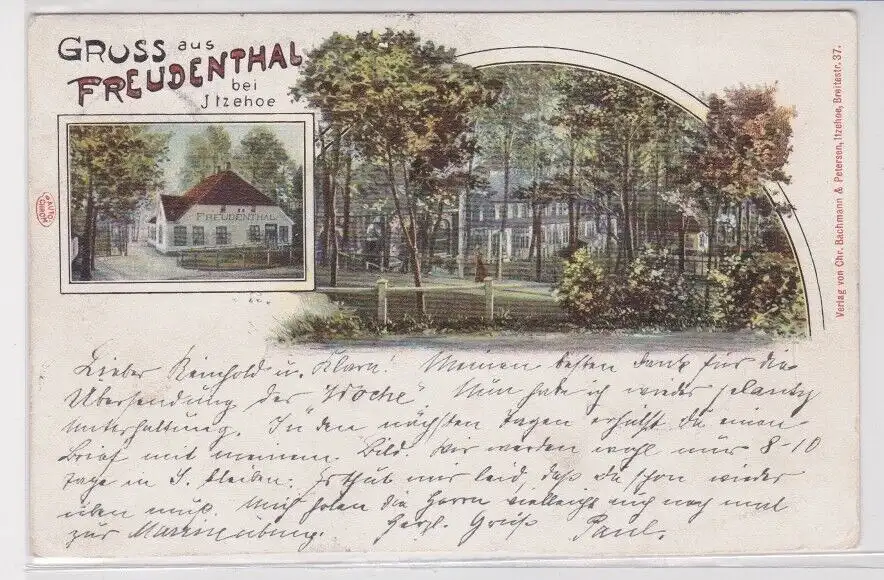 GRUSS aus
FREUDENTHAL
bei
Jtzehoe
FREUDENTHAL
AUTO
CHROM
Verlag von Chr. Bachmann & Petersen, Itzehoe, Breitestr. 37.
Lieber Reinhold u. Klara! Meinen besten Dank für die
Übersendung der "Woche" Nun habe ich wieder
Unterhaltung. In den nächsten Tagen erhälst du einen
Brief mit meinem Bild. Wir werden wohl nur 8-10
Tage in S. bleiben. Es thut mir leid, daß du schon wieder
üben mußt. Mich holen die Herren vielleicht auch noch mal
zur Marineübung. Herzl. Gruß Paul.